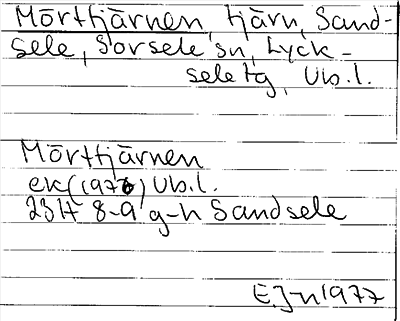 Mörttjärnen, tjärn, Sand-
sele, Sorsele sn, Lyck-
sele tg, Vb.l.
Mörttjärnen
ek (1976) Vb.l.
23H 8-9 g-h Sandsele
E.J-n 1977